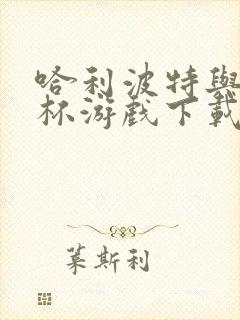 哈利波特與
杯游戲下載
葉斯利